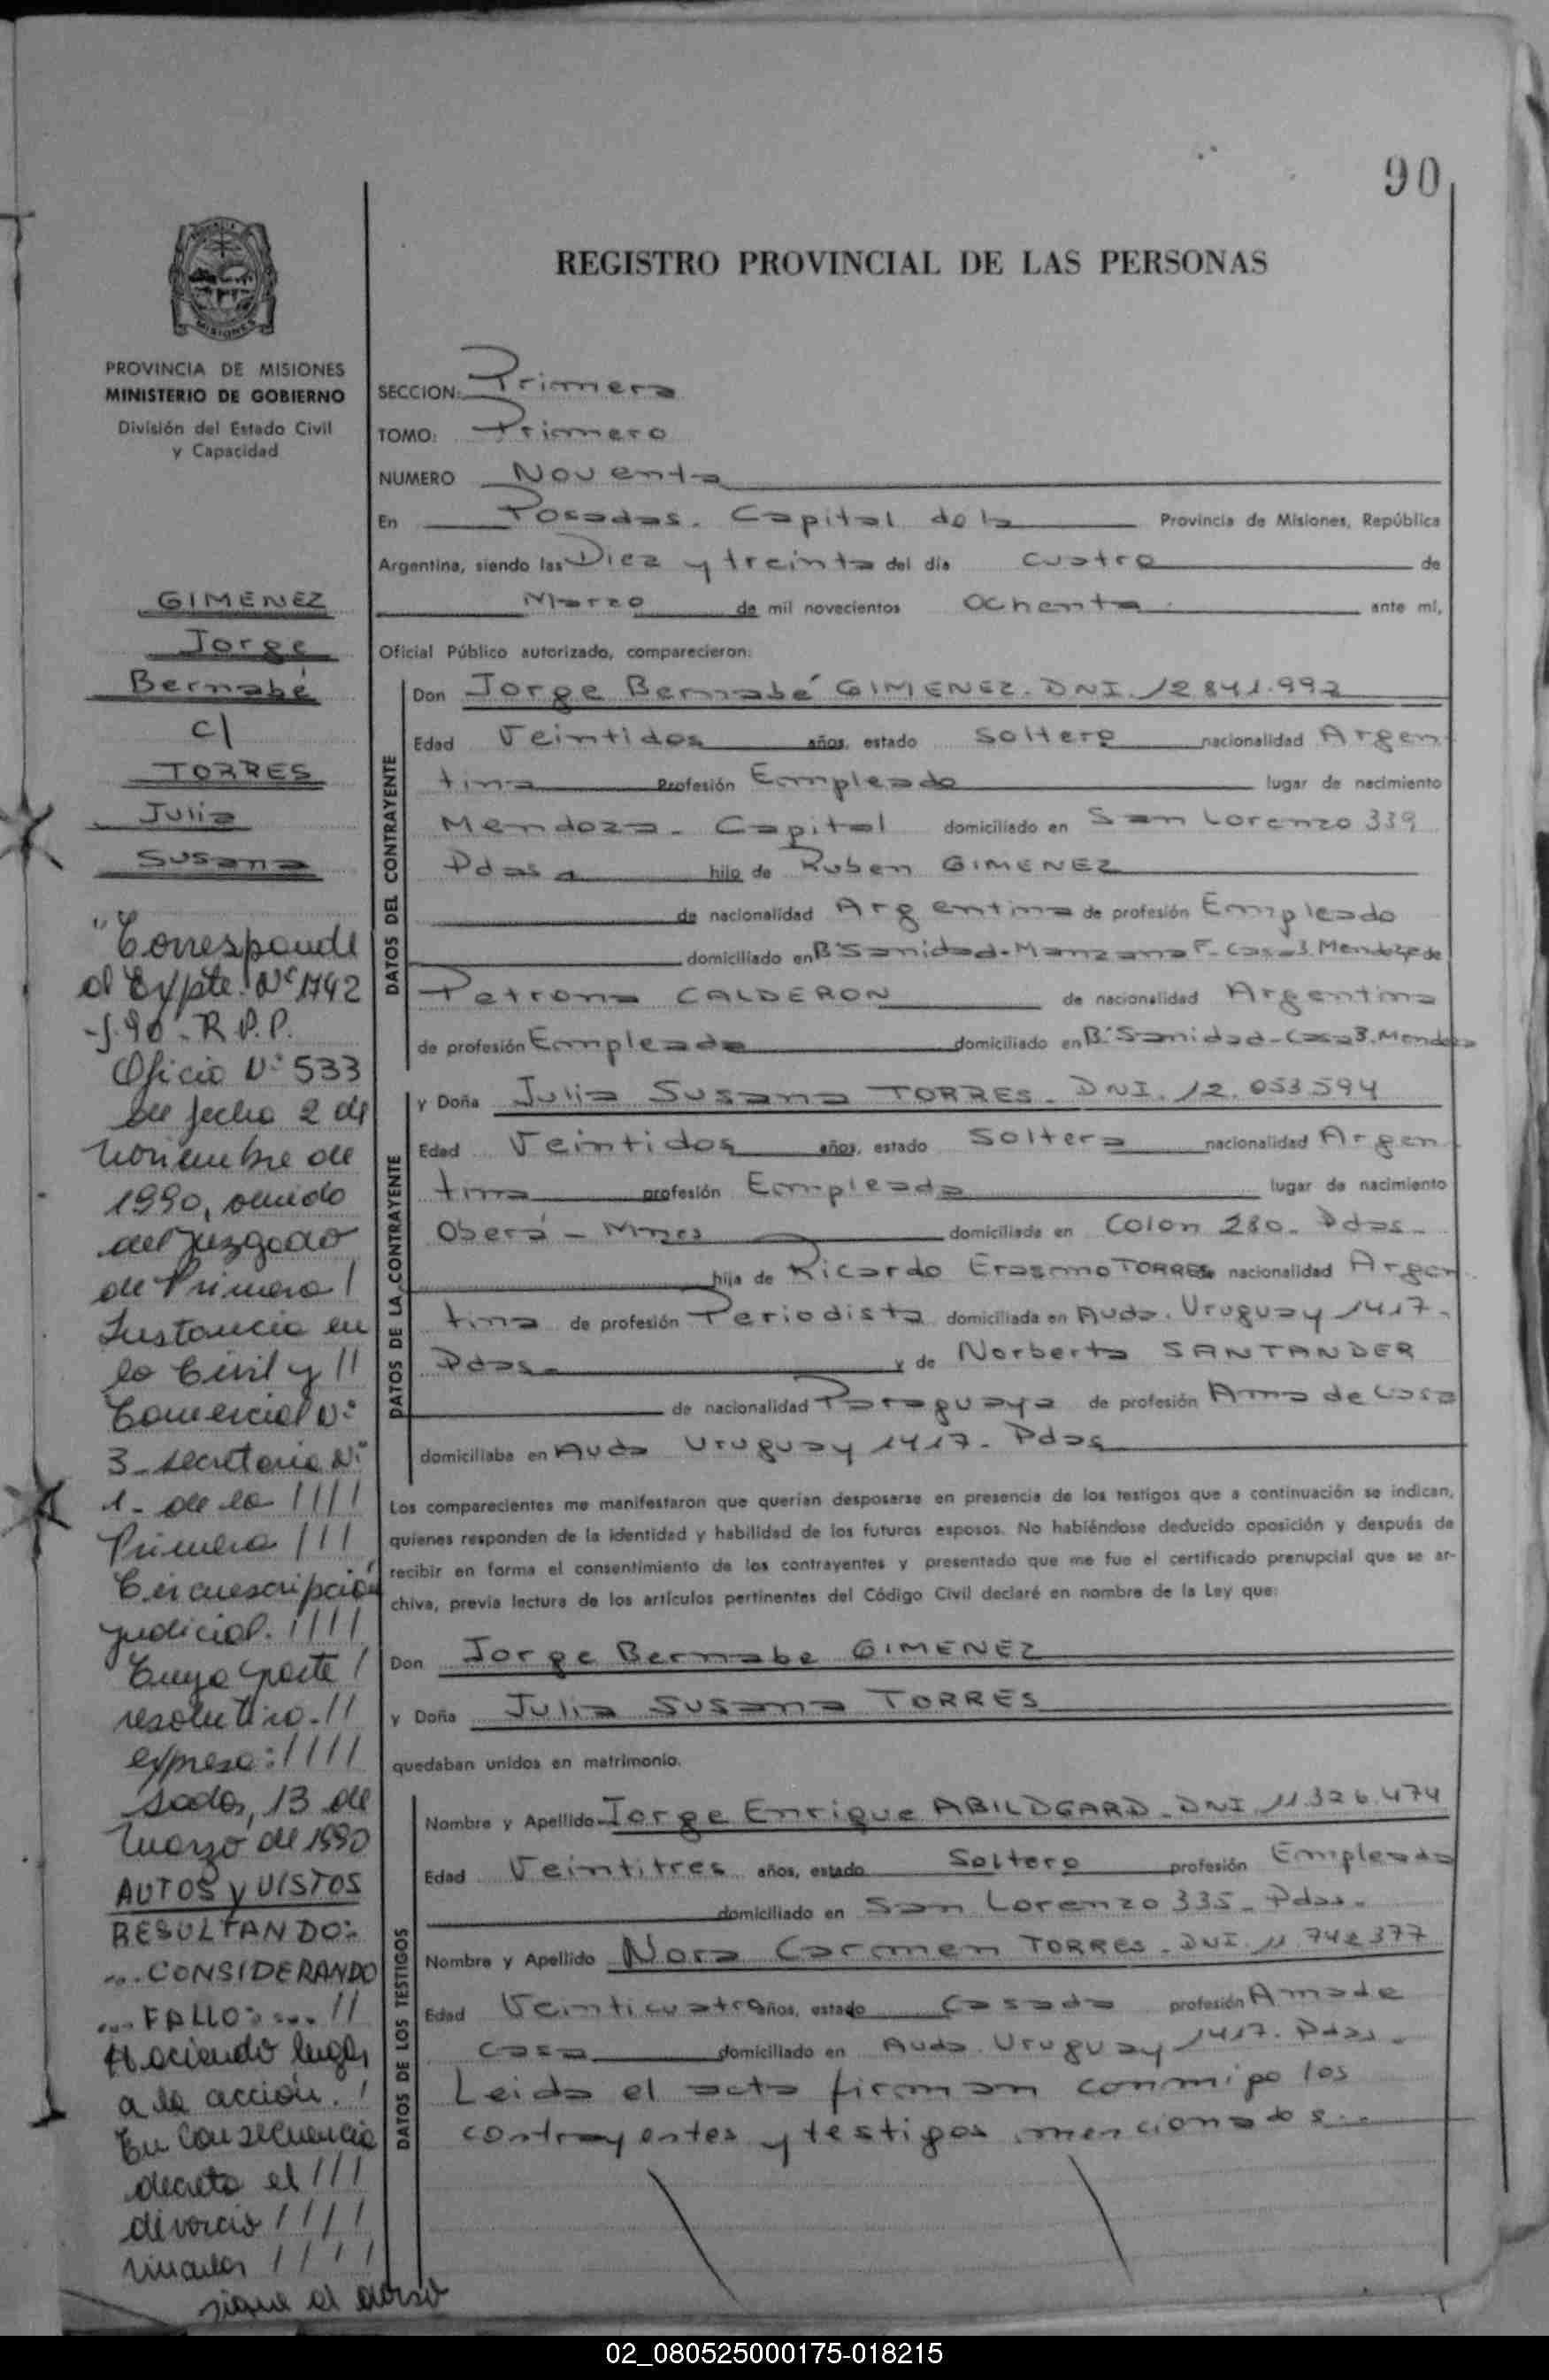 90
REGISTRO PROVINCIAL DE LAS PERSONAS
MISIONES
PROVINCIA DE MISIONES
MINISTERIO DE GOBIERNO
División del Estado Civil
y Capacidad
GIMENEZ
Jorge
Bernabé
c/
TORRES
Julia
Susana
"Corresponde
al Expte. Nº 1742
-J-90- R.P.P.
Oficio Nº 533
de fecha 2 de
Noviembre de
1990, venido
del Juzgado
de Primera /
Instancia en
lo Civil y //
Comercial Nº
3 - Secretaria Nº
1 - de la ////
Primera ///
Circunscripción
judicial. ////
Cuya parte /
resolutiva - //
expresa: ////
sadas, 13 de
Marzo de 1990
AUTOS y VISTOS
RESULTANDO:
... CONSIDERANDO
... FALLO: ... //
Haciendo lugar
a la acción. /
En consecuencia
decreto el ///
divorcio ////
vincular ////
sigue al dorso
SECCION: Primera
TOMO: Primero
NUMERO Noventa
En Posadas. Capital de la Provincia de Misiones, República
Argentina, siendo las Diez y treinta del día cuatro de
Marzo de mil novecientos Ochenta. ante mí,
Oficial Público autorizado, comparecieron:
DATOS DEL CONTRAYENTE
Don Jorge Bernabé GIMENEZ. DNI. 12.841.992
Edad Veintidos años, estado Soltero nacionalidad Argen
tina Profesión Empleado lugar de nacimiento
Mendoza - Capital domiciliado en San Lorenzo 339
Pdas hijo de Ruben GIMENEZ
de nacionalidad Argentina de profesión Empleado
domiciliado en Bº Sanidad - Manzana F - Casa 3. Mendoza y de
Petrona CALDERON de nacionalidad Argentina
de profesión Empleada domiciliado en Bº Sanidad - Casa 3. Mendoza
DATOS DE LA CONTRAYENTE
y Doña Julia Susana TORRES. DNI. 12.053.594
Edad Veintidos años, estado Soltera nacionalidad Argen
tina profesión Empleada lugar de nacimiento
Oberá - Mnes domiciliada en Colon 280. Pdas.
hija de Ricardo Erasmo TORRES de nacionalidad Argen
tina de profesión Periodista domiciliada en Avda. Uruguay 1417.
Pdas. y de Norberta SANTANDER
de nacionalidad Paraguaya de profesión Ama de Casa
domiciliaba en Avda Uruguay 1417 - Pdas
Los comparecientes me manifestaron que querían desposarse en presencia de los testigos que a continuación se indican,
quienes responden de la identidad y habilidad de los futuros esposos. No habiéndose deducido oposición y después de
recibir en forma el consentimiento de los contrayentes y presentado que me fue el certificado prenupcial que se ar-
chiva, previa lectura de los artículos pertinentes del Código Civil declaré en nombre de la Ley que:
Don Jorge Bernabe GIMENEZ
y Doña Julia Susana TORRES
quedaban unidos en matrimonio.
DATOS DE LOS TESTIGOS
Nombre y Apellido Jorge Enrique ABILDGARD - DNI. 11.326.474
Edad Veintitres años, estado Soltero profesión Empleado
domiciliado en San Lorenzo 335 - Pdas.
Nombre y Apellido Nora Carmen TORRES - DNI. 11.742.377
Edad Veinticuatro años, estado Casada profesión Ama de
casa domiciliado en Avda. Uruguay 1417. Pdas.
Leida el acta firman conmigo los
contrayentes y testigos mencionados..
02_080525000175-018215